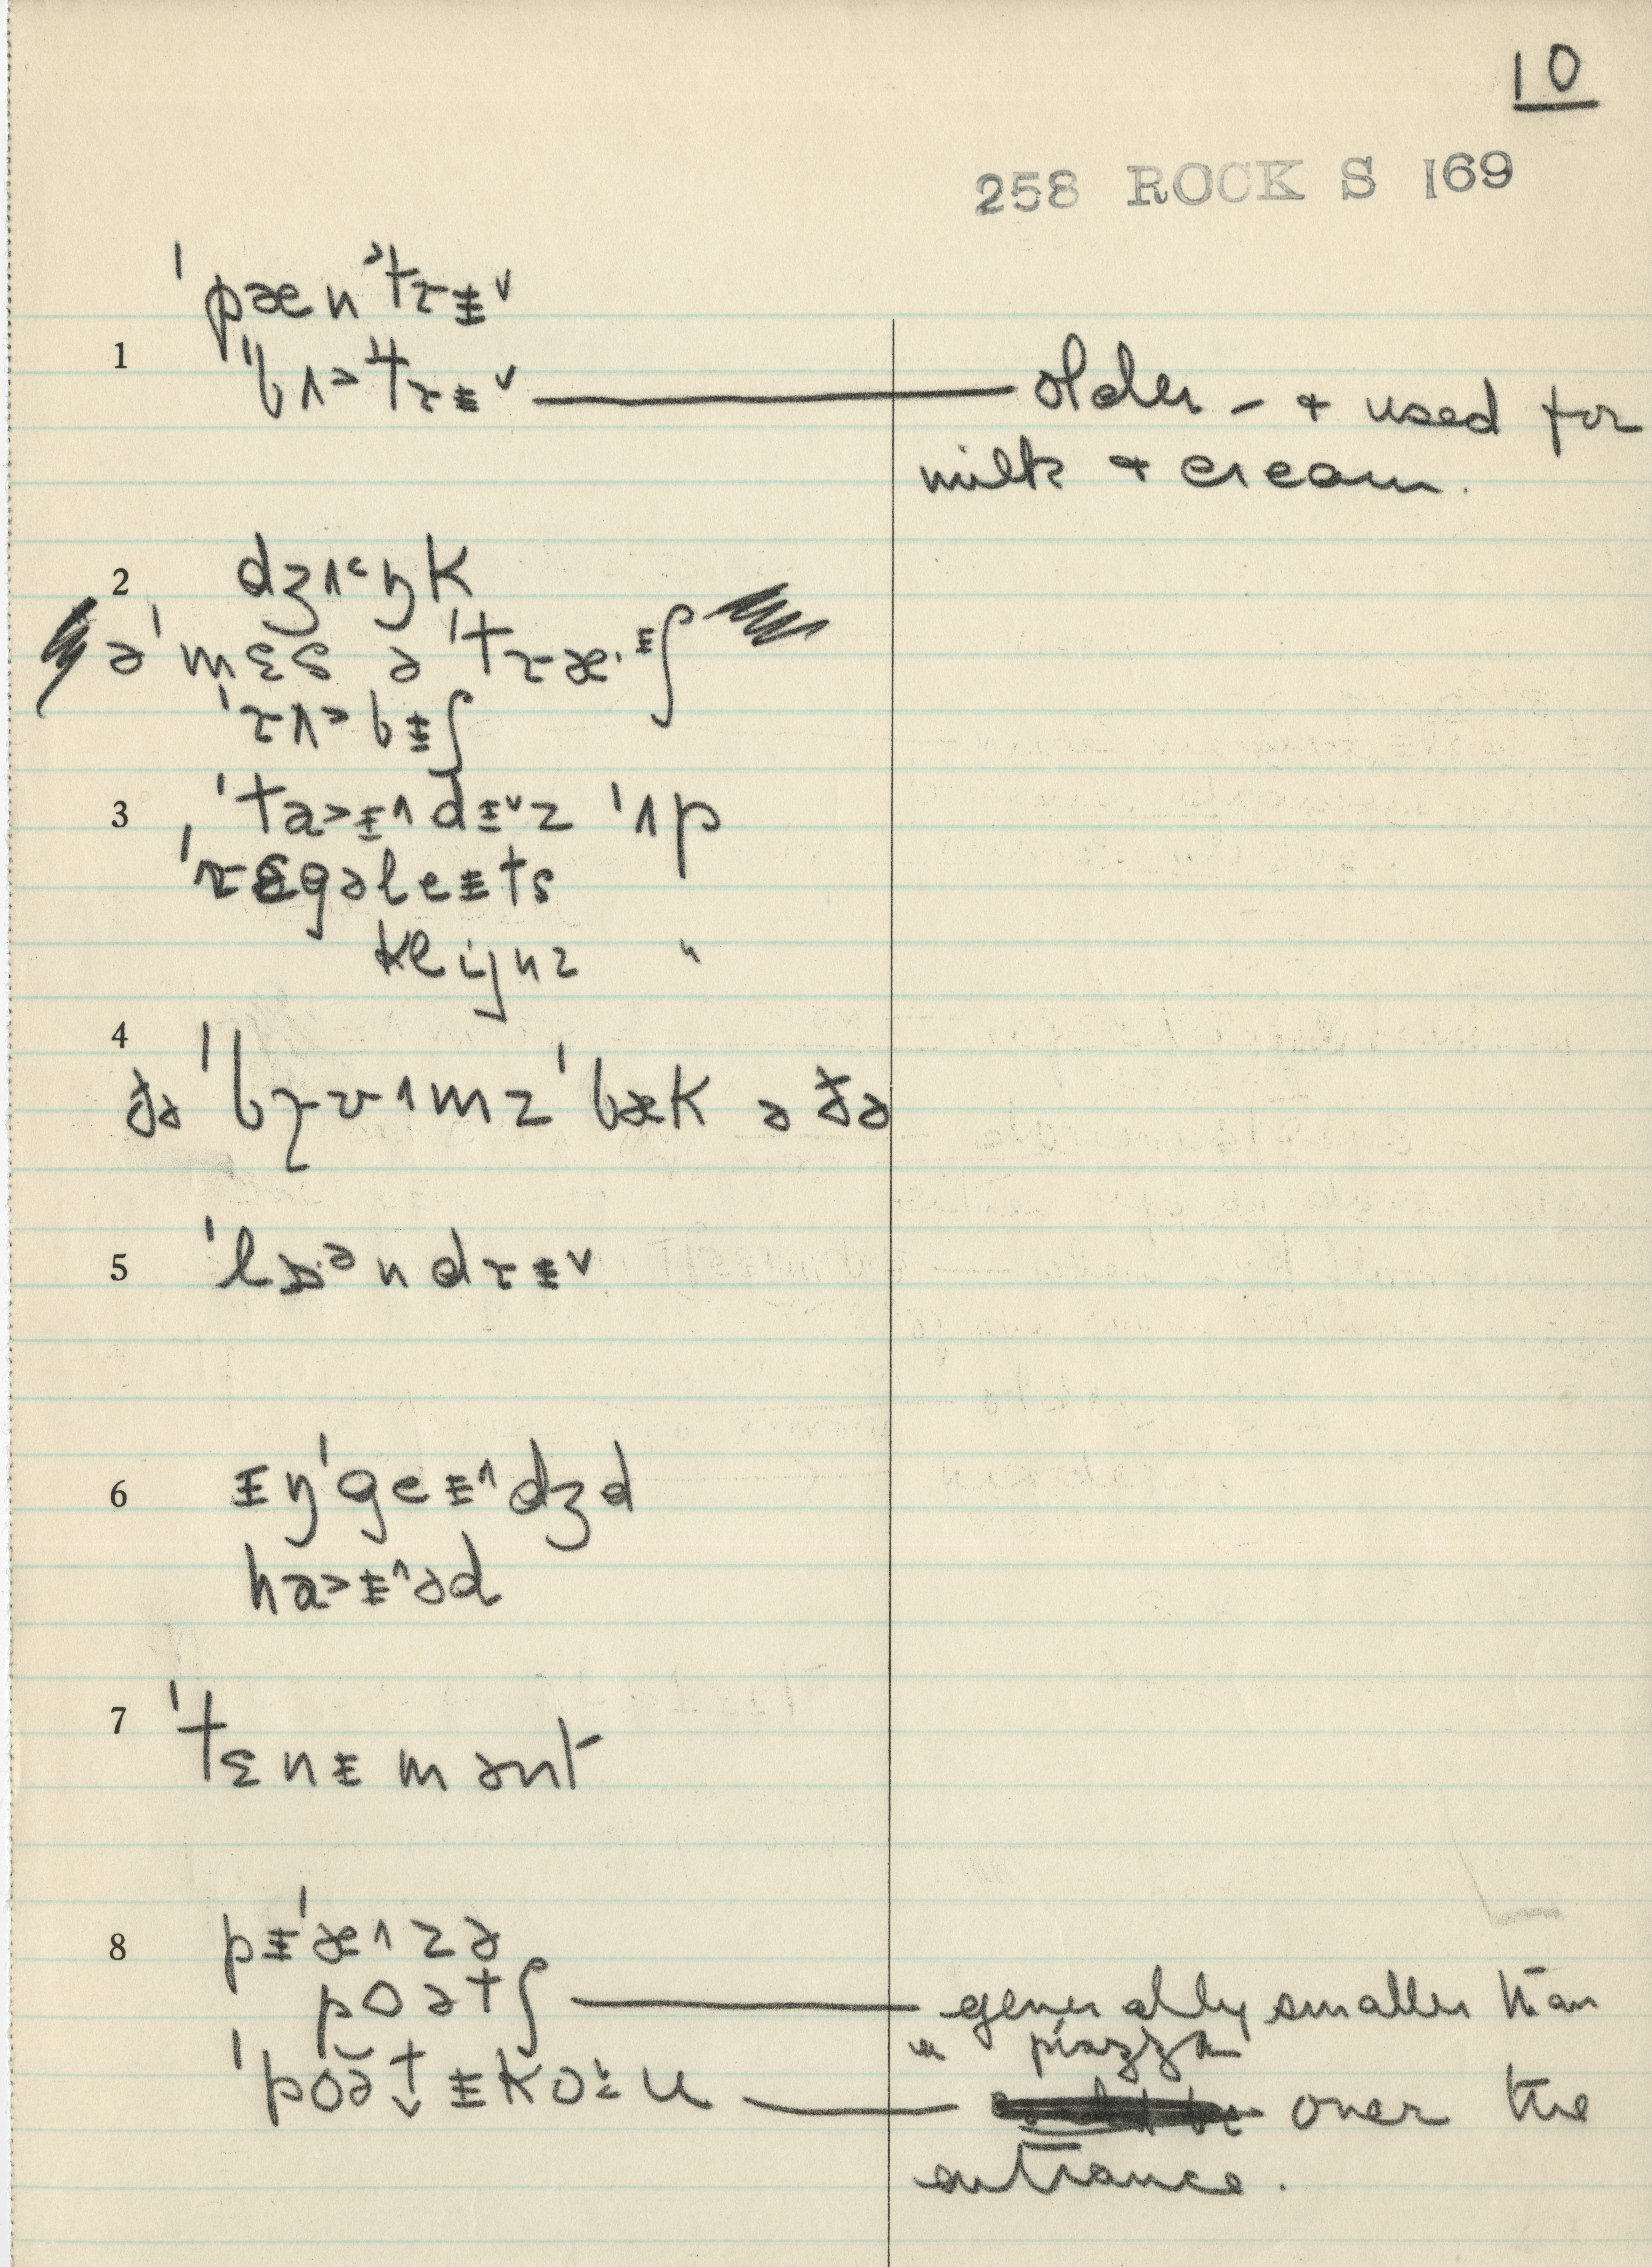 10
258 ROCK S 169
ˈpænˀtɹᵻ˅
1 ˈbʌ˃tɹᵻ˅ — older – + used for
milk + cream.
2 dʒʌ˂ŋk
ə ˈmɛs ə ˈtɹæ·ᵻʃ
ˈɹʌ˃bᵻʃ
3 ˈta˃ᵻ˄dᵻ˅z ˈʌp
ˈɹɛgəleᵻts
kliɪnz "
4
ðə ˈbɹʊ˄mz ˈbæk ə ðə
5 ˈlɒ·ᵊndɹᵻ˅
6 ᵻŋˈgeᵻ˄dʒd
ha˃ᵻ˄əd
7 ˈtɛnᵻmənt
8 pᵻˈæ˄zə
poətʃ — generally smaller than
a piazza
ˈpoə̆t̬ᵻkoʊ — over the
entrance.